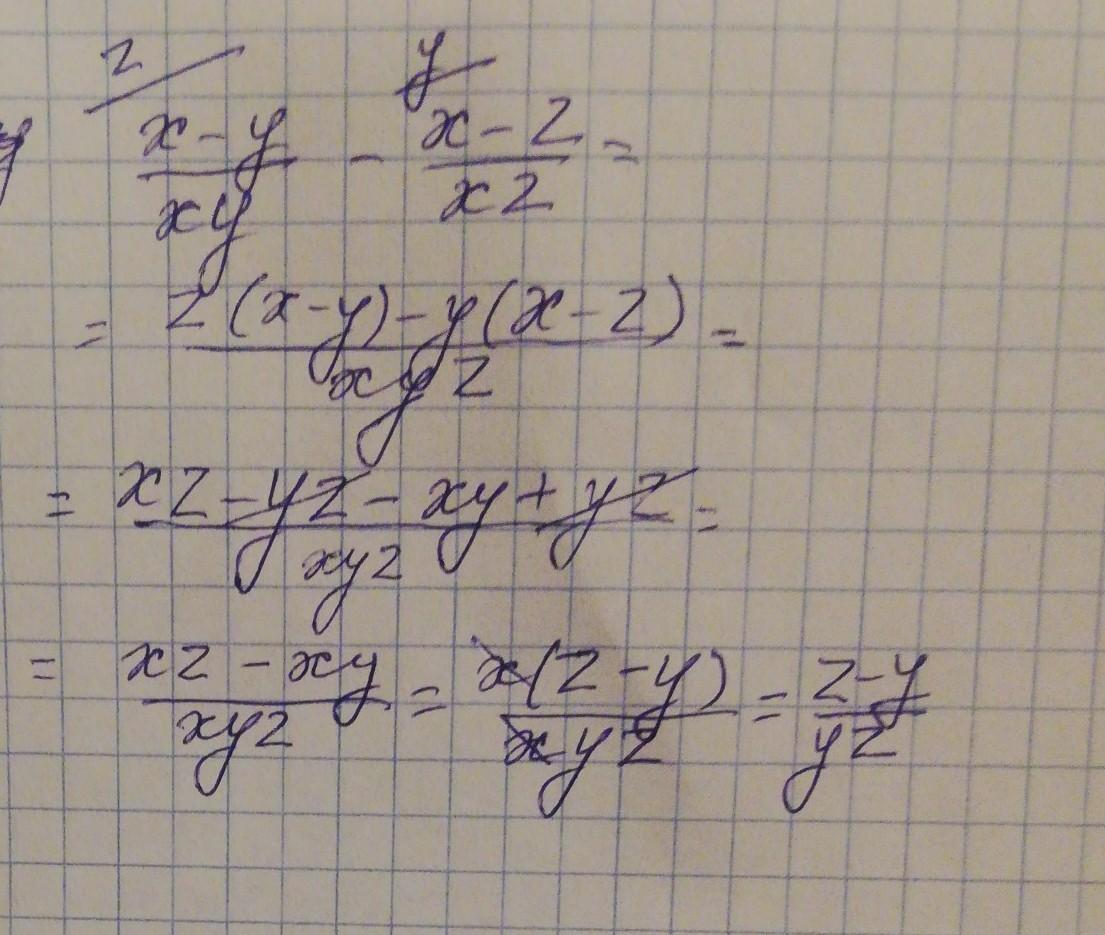 z y
y (x-y)/(xy) - (x-z)/(xz) =
= (z(x-y)-y(x-z))/(xyz) =
= (xz-yz-xy+yz)/(xyz) =
= (xz-xy)/(xyz) = (x(z-y))/(xyz) = (z-y)/(yz)